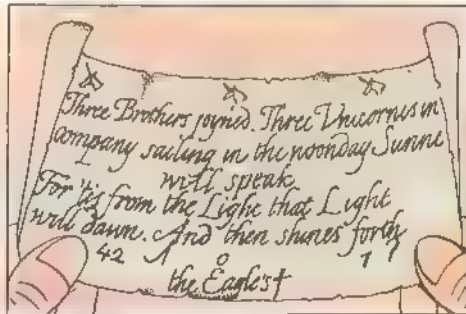 Three Brothers joyned. Three Unicornes in
company sailing in the noonday Sunne
will speak
For 'tis from the Light that Light
will dawn. And then shines forth
42 1 0 7
the Eagles†